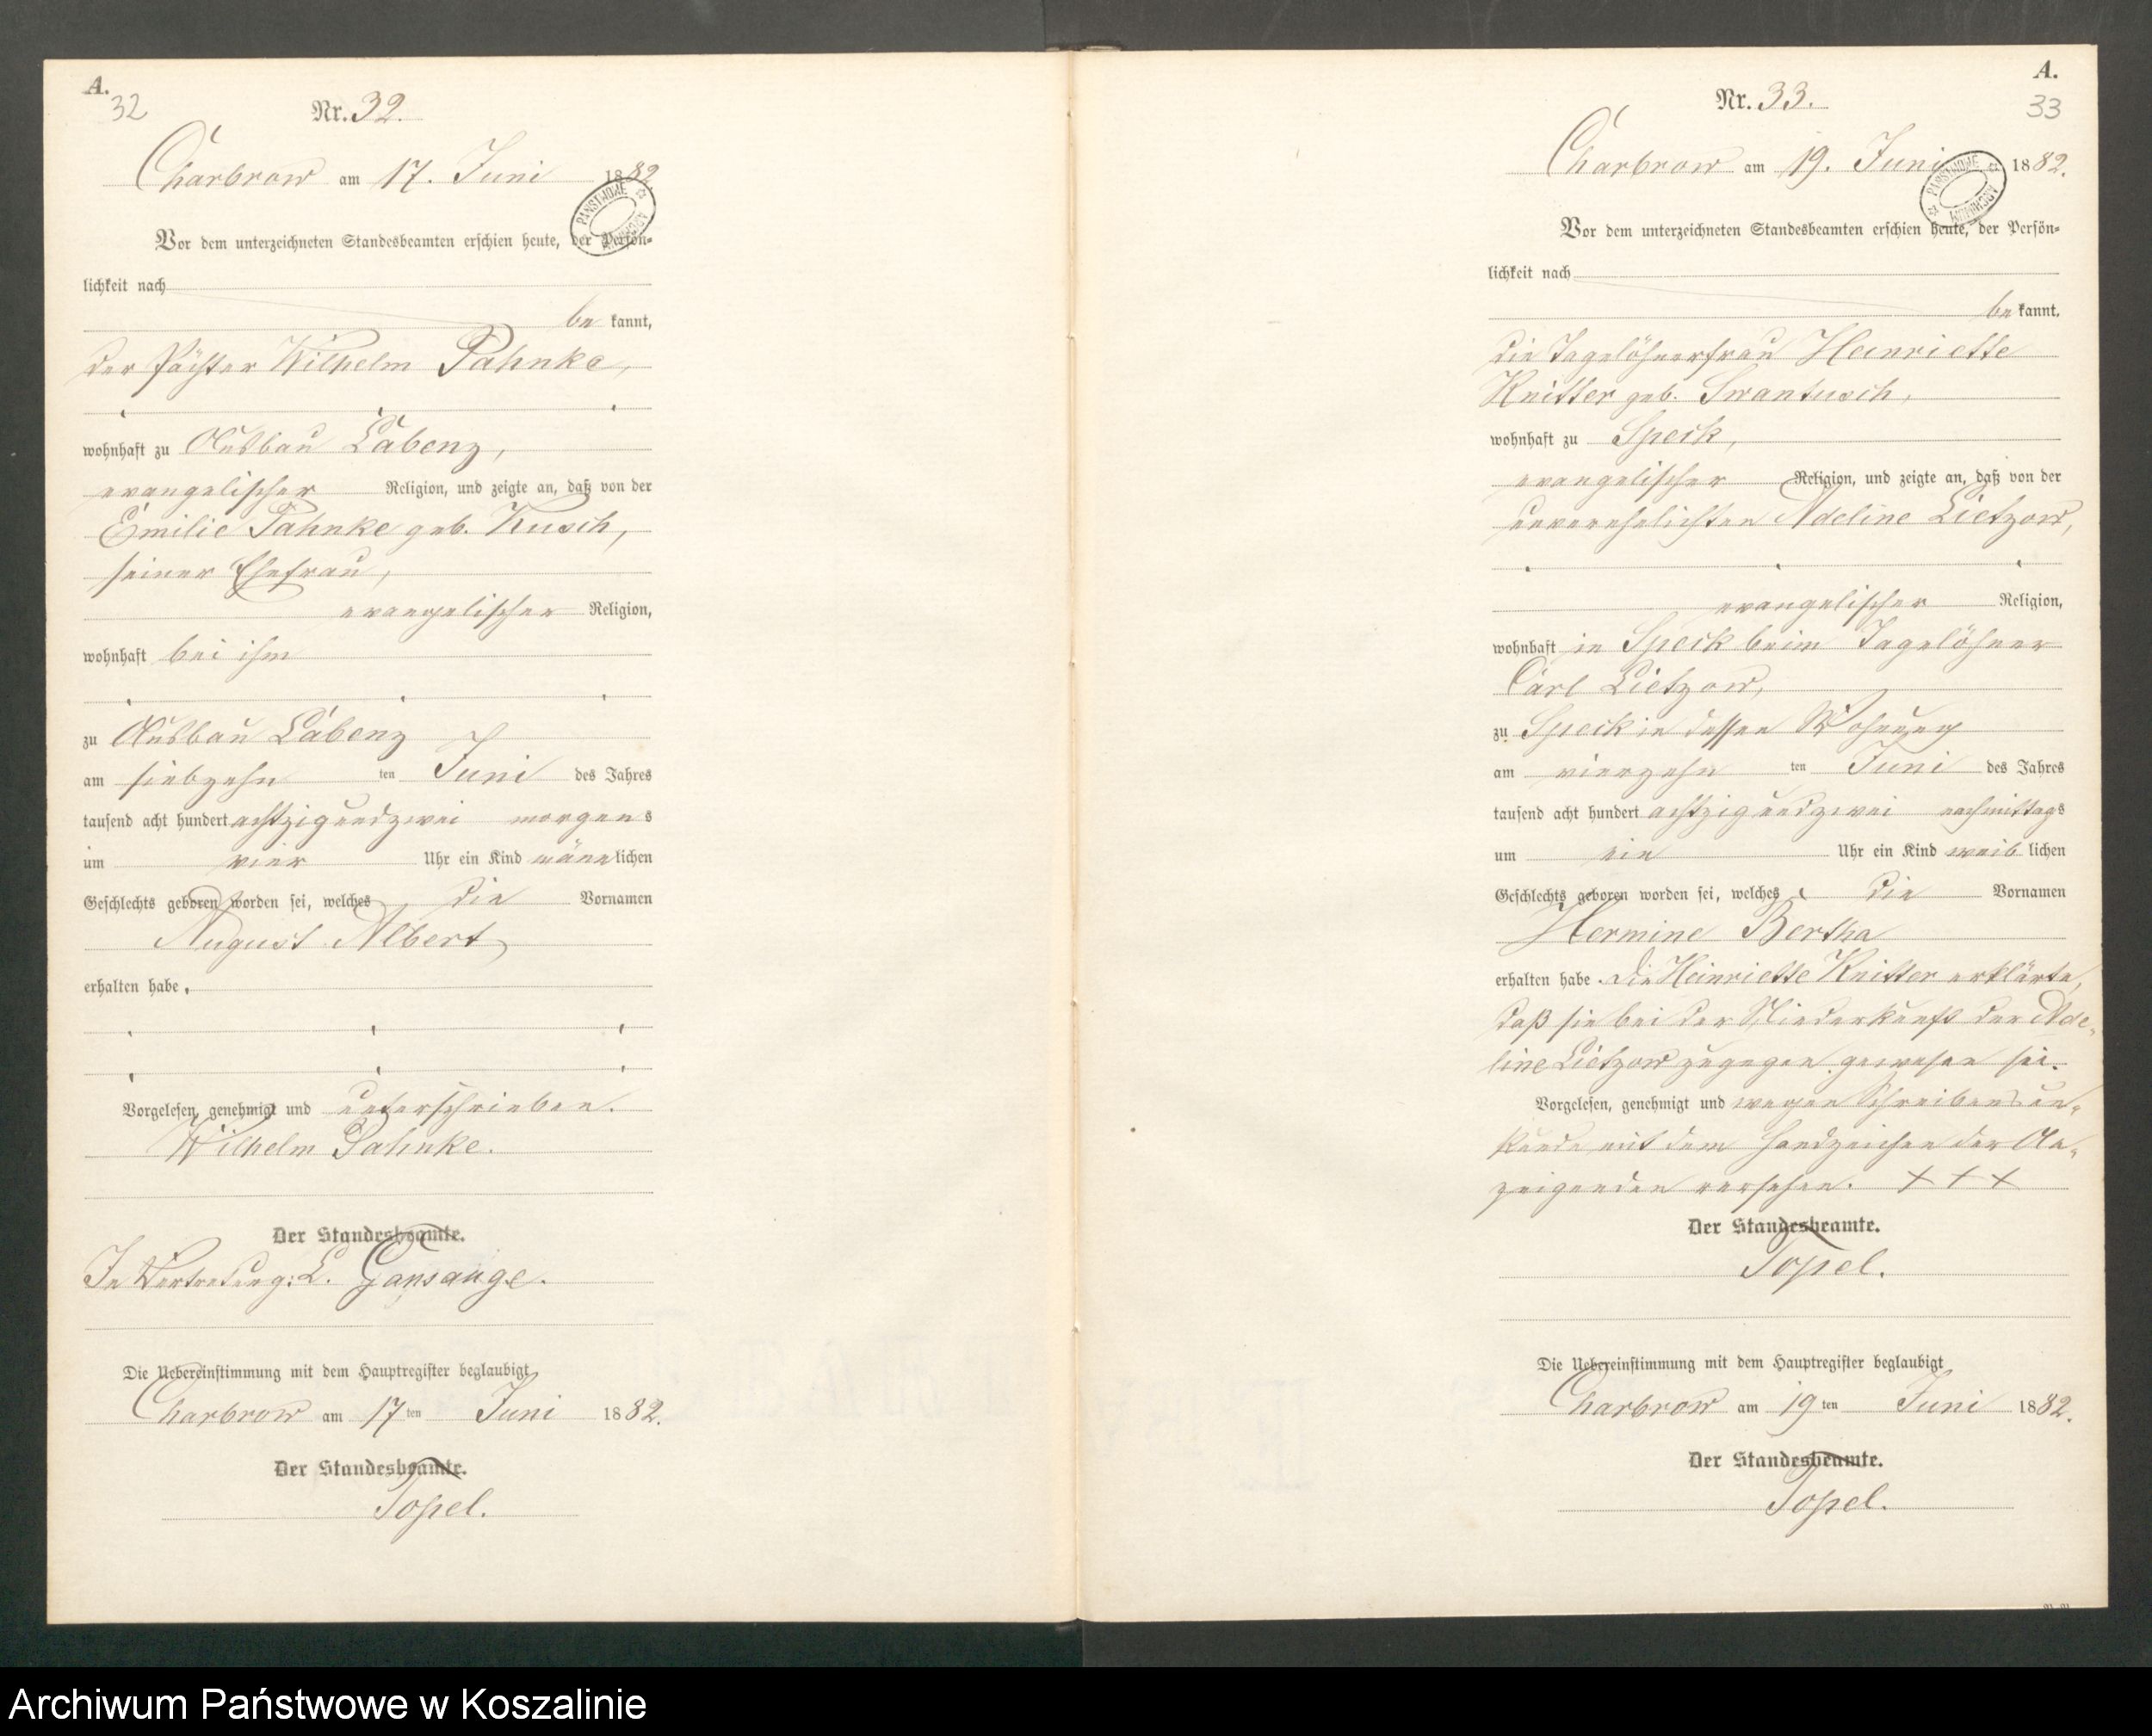 A.
32
Nr. 32.
Charbrow am 17. Juni 1882
PANSTWOWE ARCHIWUM
Vor dem unterzeichneten Standesbeamten erschien heute, der Persön-
lichkeit nach
be kannt,
der Pächter Wilhelm Pahnke,
wohnhaft zu Ausbau Labenz,
evangelischer Religion, und zeigte an, daß von der
Emilie Pahnke geb. Kusch,
seiner Ehefrau,
evangelischer Religion,
wohnhaft bei ihm
zu Ausbau Labenz
am siebzehn ten Juni des Jahres
tausend acht hundert achtzig und zwei morgens
um vier Uhr ein Kind männlichen
Geschlechts geboren worden sei, welches die Vornamen
August Albert
erhalten habe.
Vorgelesen, genehmigt und unterschrieben.
Wilhelm Pahnke.
Der Standesbeamte.
In Vertretung: L. Gansauge.
Die Uebereinstimmung mit dem Hauptregister beglaubigt
Charbrow am 17ten Juni 1882.
Der Standesbeamte.
Topel.
A.
33
Nr. 33.
Charbrow am 19. Juni 1882.
PANSTWOWE ARCHIWUM
Vor dem unterzeichneten Standesbeamten erschien heute, der Persön-
lichkeit nach
be kannt,
die Tagelöhnerfrau Henriette
Knitter geb. Swantusch,
wohnhaft zu Speck,
evangelischer Religion, und zeigte an, daß von der
unverehelichten Adeline Lietzow,
evangelischer Religion,
wohnhaft in Speck beim Tagelöhner
Carl Lietzow,
zu Speck in dessen Wohnung
am vierzehn ten Juni des Jahres
tausend acht hundert achtzig und zwei nachmittags
um ein Uhr ein Kind weib lichen
Geschlechts geboren worden sei, welches die Vornamen
Hermine Bertha
erhalten habe. Die Heinriette Knitter erklärte,
daß sie bei der Niederkunft der Ade-
line Lietzow zugegen gewesen sei.
Vorgelesen, genehmigt und wegen Schreibensun-
kunde mit dem Handzeichen der An-
zeigenden versehen. + + +
Der Standesbeamte.
Topel.
Die Uebereinstimmung mit dem Hauptregister beglaubigt
Charbrow am 19ten Juni 1882.
Der Standesbeamte.
Topel.
Archiwum Państwowe w Koszalinie